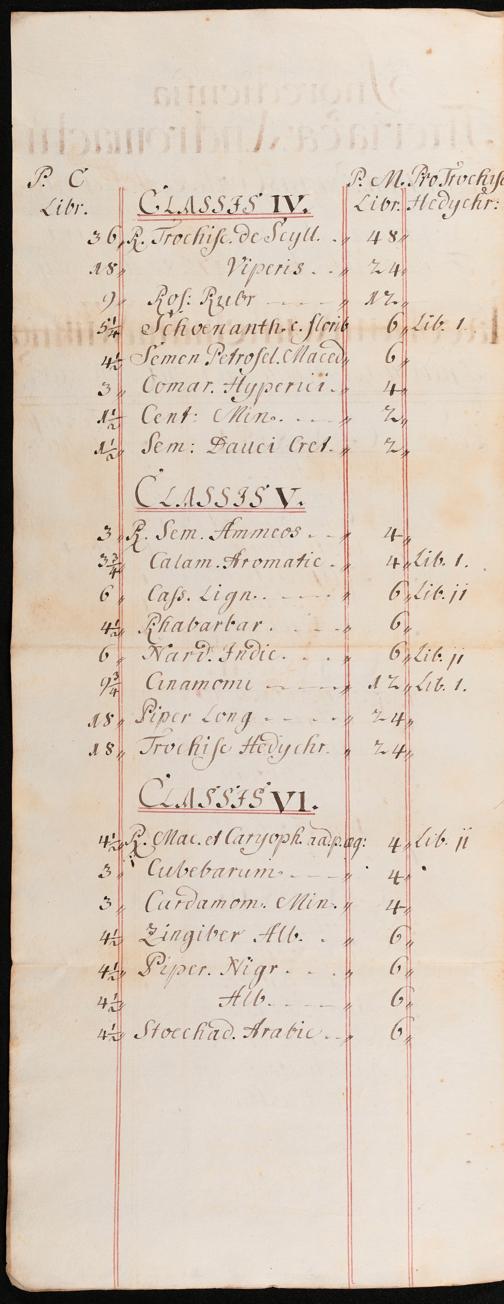 P. C P. M. Pro Trochisc
Libr. CLASSIS IV. Libr. Hedychr:
36 R. Trochisc. de Scyll. 48
18 Viperis . . 24
9 Ros: Rubr 12
5¼ Schoenanth. c. florib 6 Lib. 1.
4½ Semen Petrosel. Maced 6
3 Comar. Hyperici. 4
1½ Cent: Min. 2
1½ Sem: Dauci Cret. 2
CLASSIS V.
3 R. Sem. Ammeos . 4
3¾ Calam. Aromatic . 4 Lib. 1.
6 Cass. Lign. . 6 Lib. jj
4½ Rhabarbar . 6
6 Nard. Indic . 6 Lib. jj
9¾ Cinamomi 12 Lib. 1.
18 Piper Long 24
18 Trochisc Hedychr. 24
CLASSIS VI.
4½ R. Mac. et Caryoph. aa p. æq: 4 Lib. jj
3 Cubebarum 4
3 Cardamom. Min. 4
4½ Zingiber Alb. . 6
4½ Piper. Nigr . 6
4½ Alb. 6
4½ Stoechad. Arabic . 6